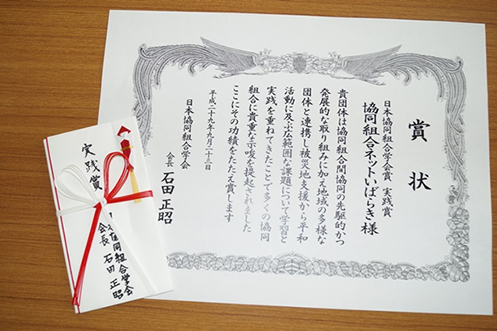 賞状
日本協同組合学会賞 実践賞
協同組合ネットいばらき 様
貴団体は協同組合間協同の先駆的かつ
発展的な取り組みに加え地域の多様な
団体と連携し被災地支援から平和
活動に及ぶ広範囲な課題について学習と
実践を重ねてきたことで多くの協同
組合に貴重な示唆を提起されました
ここにその功績をたたえ賞します
平成二十九年九月二十三日
日本協同組合学会
会長 石田 正昭
実践賞
協同組合学会
会長 石田 正昭